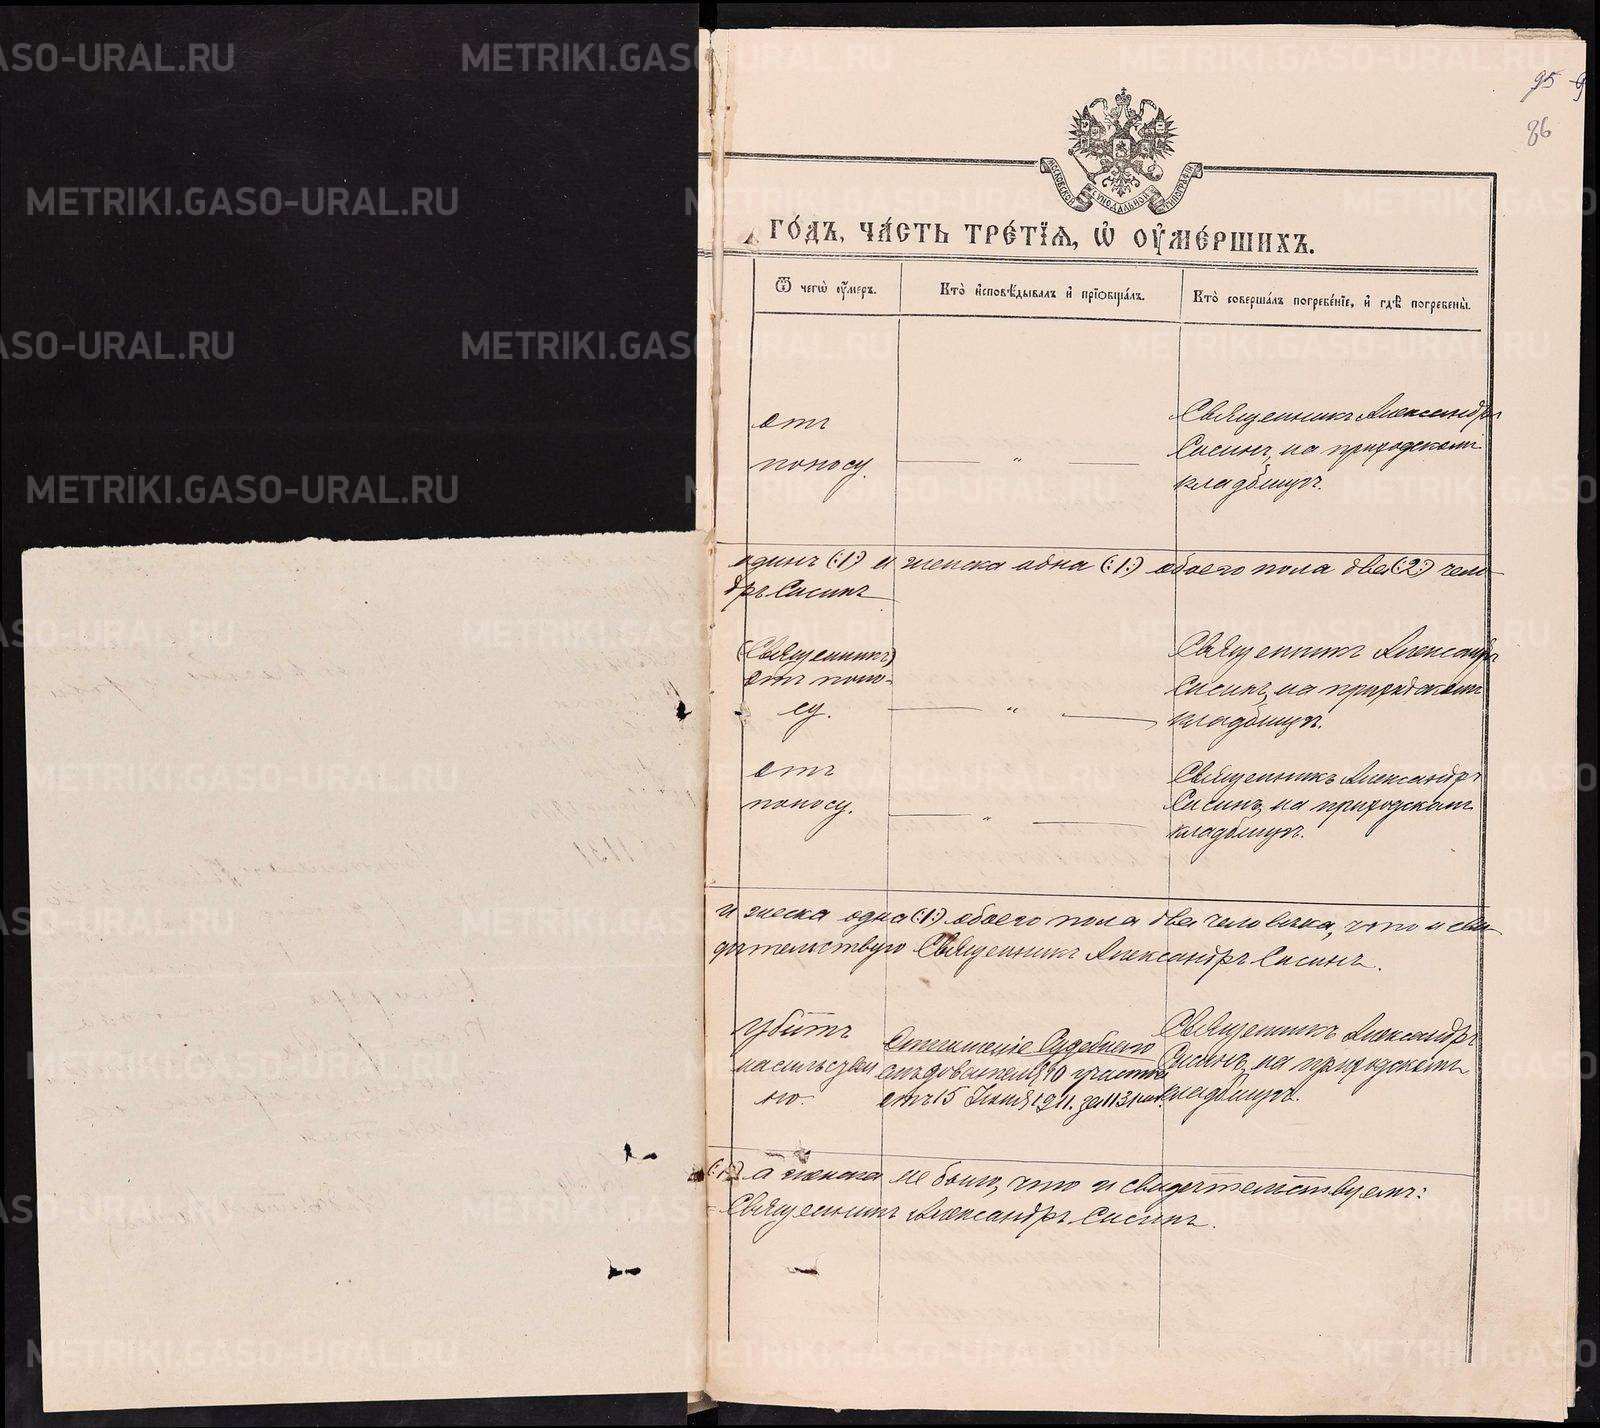 95
86
МОСКОВСКОЙ СѴНОДАЛЬНОЙ ТИПОГРАФІИ
ГО́ДЪ, ЧА́СТЬ ТРЕ́ТІѦ, Ѡ҆ ОУ҆МЕ́РШИХЪ.
Ѿ чегѡ̀ оу҆́меръ.
Кто̀ и҆сповѣ́дывалъ и҆ прїѡбща́лъ.
Кто̀ соверша́лъ погребе́нїе, и҆ гдѣ̀ погребены̀.
отъ
поносу.
— „ —
Священникъ Александръ
Сисинъ, на приходскомъ
кладбищѣ.
одинъ (:1:) и женска одна (:1:) обоего пола два (:2:) чело-
дръ Сисинъ
(Священникъ)
отъ поно-
су.
— „ —
Священникъ Александръ
Сисинъ, на приходскомъ
кладбищѣ.
отъ
поносу.
— „ —
Священникъ Александръ
Сисинъ, на приходскомъ
кладбищѣ.
и женска одна (:1:) обоего пола два человѣка, что и сви-
дѣтельствую Священникъ Александръ Сисинъ.
Убитъ
насильствен
но.
Отношеніе Судебнаго
слѣдователя 10 участка
отъ 15 Іюня 1911. за 1131
Священникъ Александръ
Сисинъ, на приходскомъ
кладбищѣ.
(:1:) а женска не было, что и свидѣтельствуемъ:
Священникъ Александръ Сисинъ.
METRIKI.GASO-URAL.RU